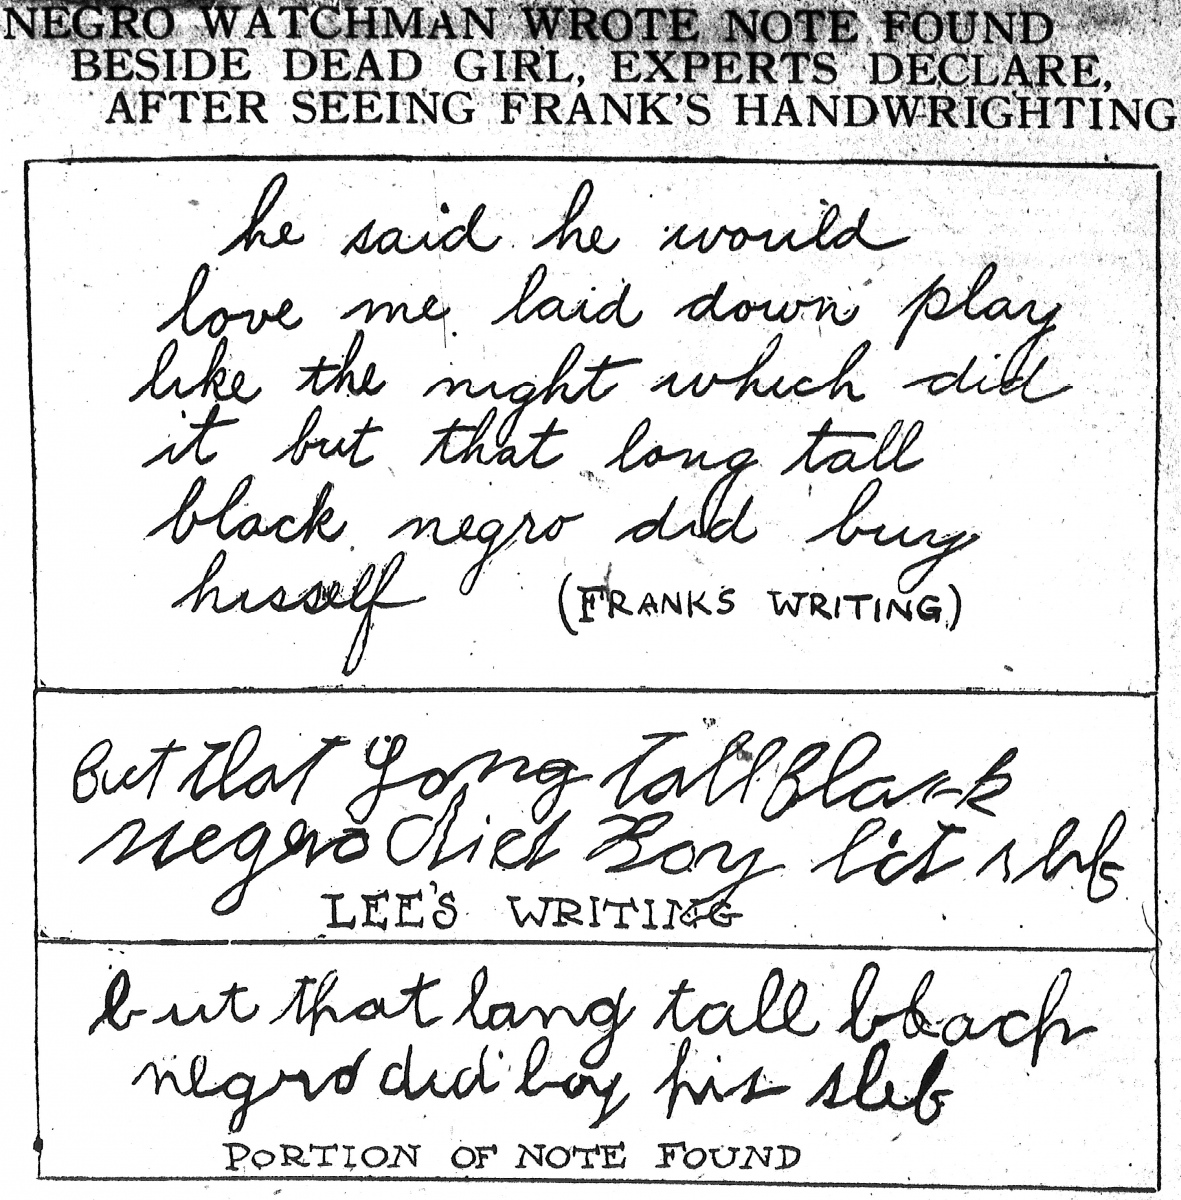 NEGRO WATCHMAN WROTE NOTE FOUND
BESIDE DEAD GIRL, EXPERTS DECLARE,
AFTER SEEING FRANK'S HANDWRIGHTING
he said he would
love me laid down play
like the night which did
it but that long tall
black negro did buy
hisself (FRANKS WRITING)
But that Long tall Black
negro did Boy hit slef
LEE'S WRITING
but that lang tall bleach
negro did boy his sleb
PORTION OF NOTE FOUND